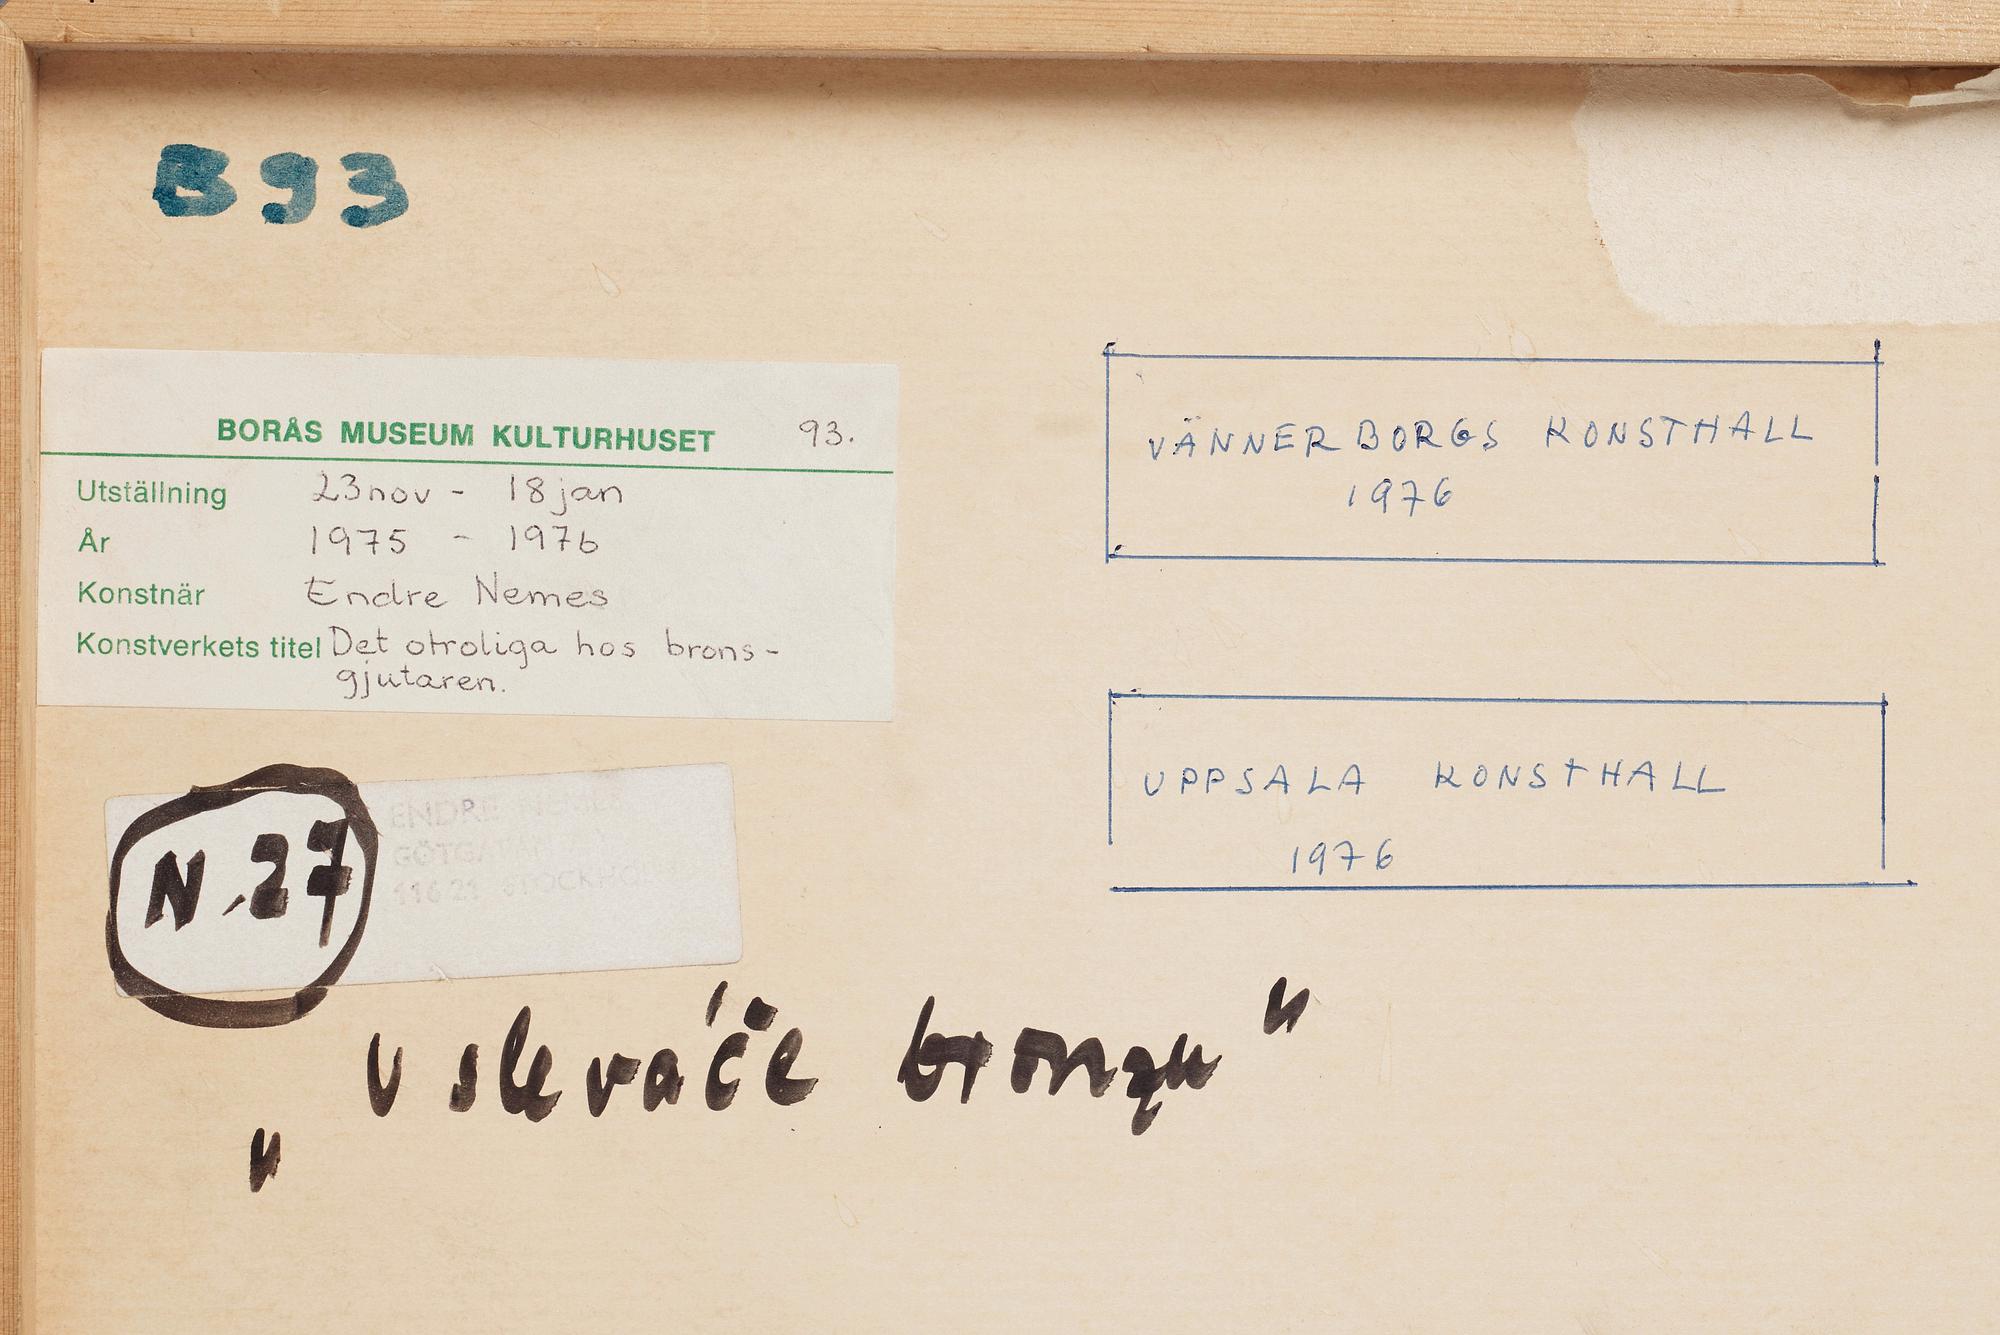 B93
BORÅS MUSEUM KULTURHUSET 93.
Utställning 23 nov - 18 jan
År 1975 - 1976
Konstnär Endre Nemes
Konstverkets titel Det otroliga hos brons-
gjutaren.
VÄNNERBORGS KONSTHALL
1976
UPPSALA KONSTHALL
1976
N.27
ENDRE
116 21 STOCKHOLM
„U slevače bronzu"